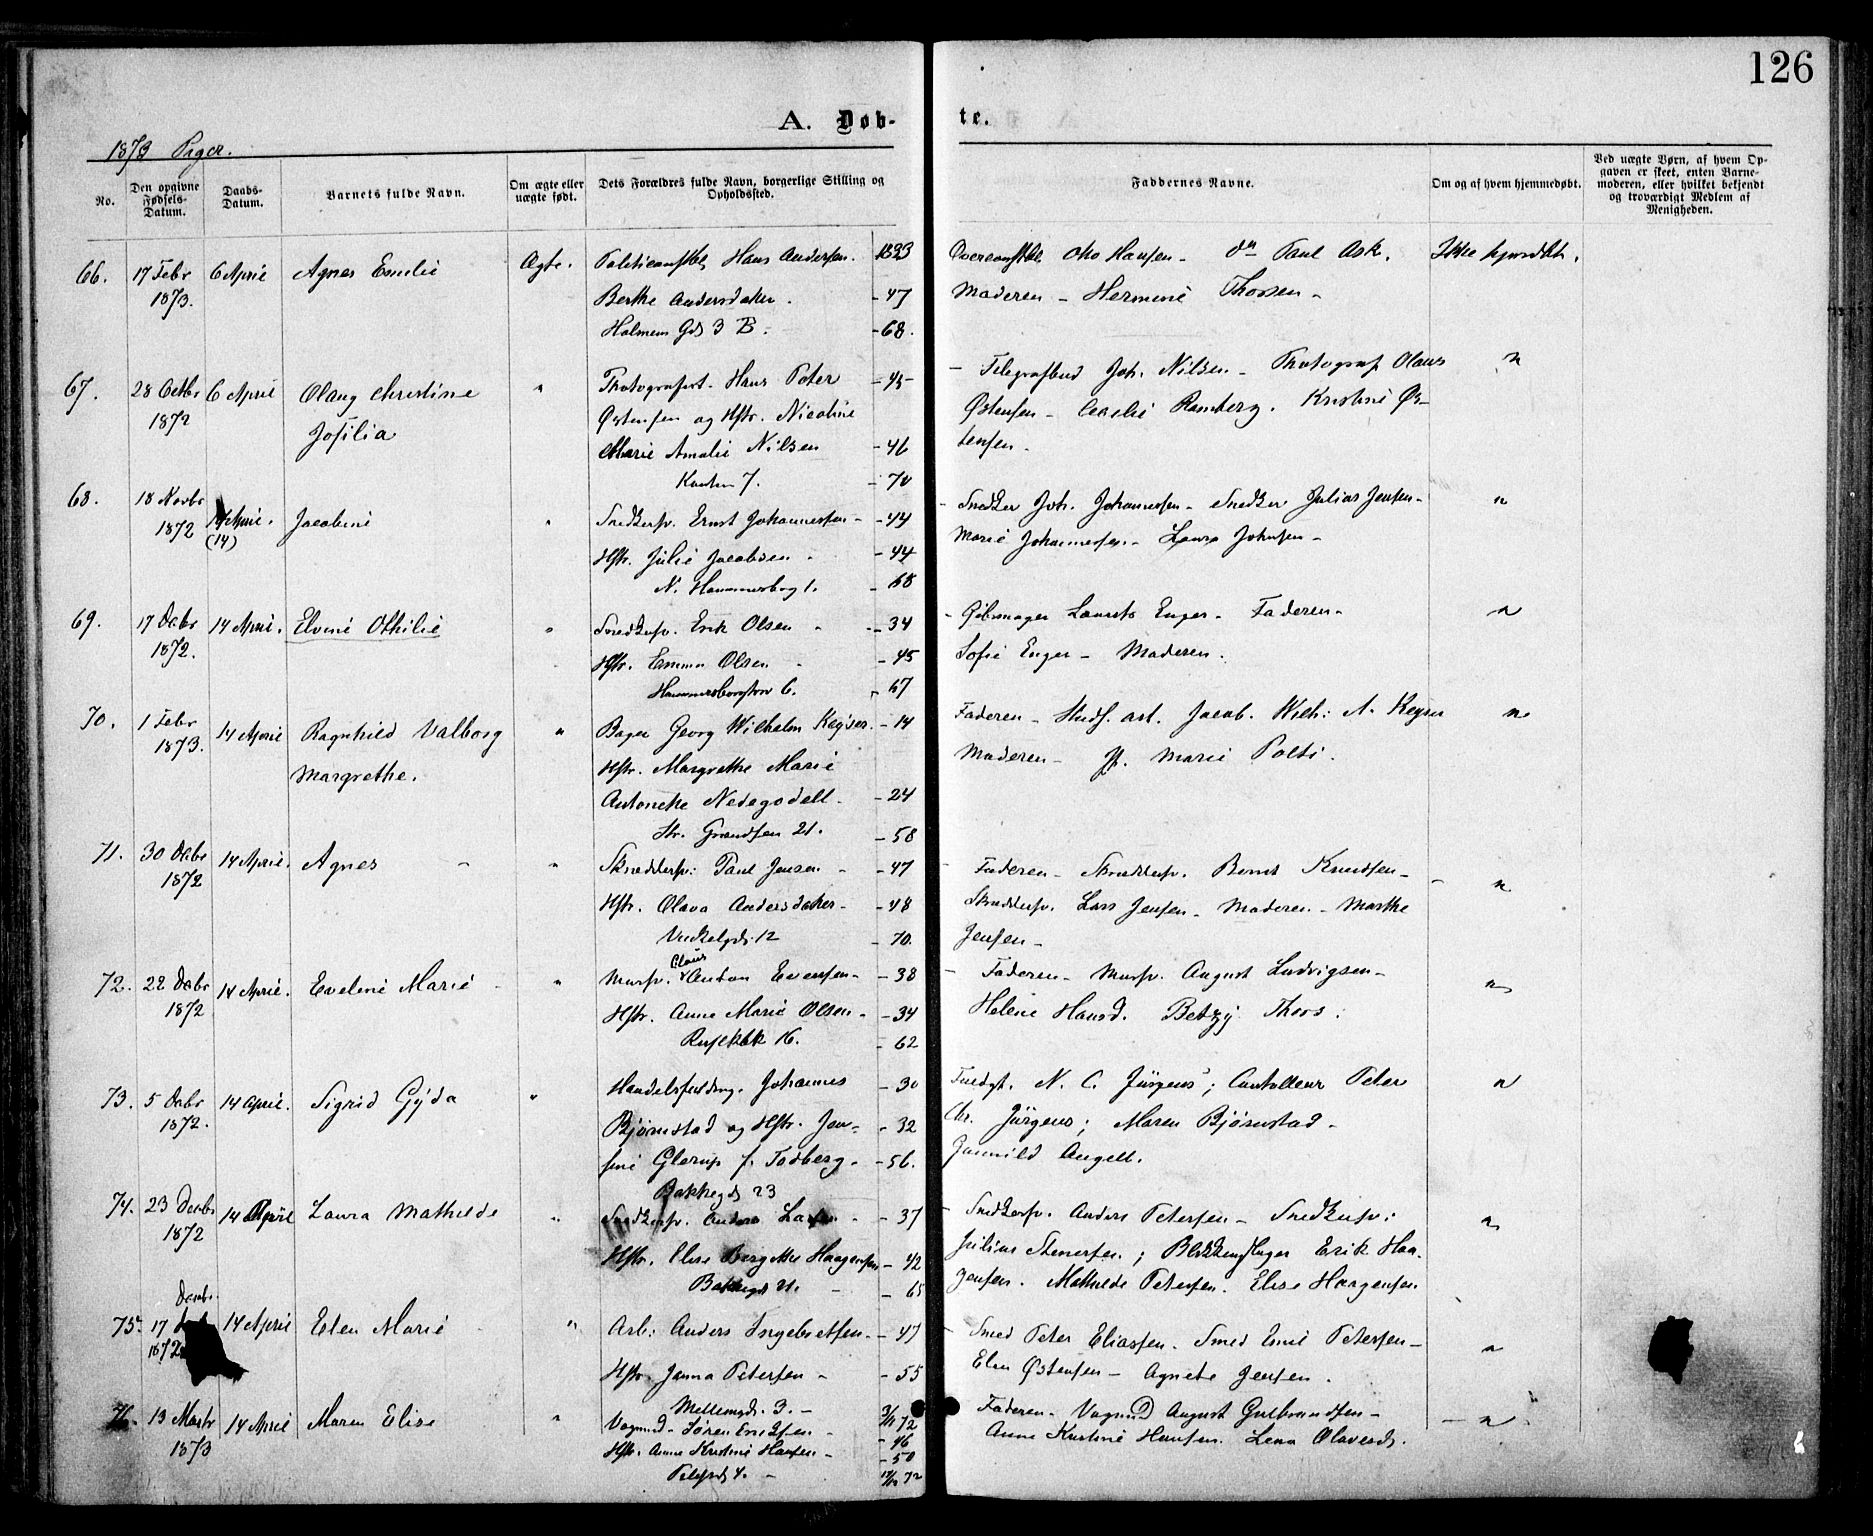 126
A. Døb-
te.
1873 Piger.
No.
Den opgivne Fødsels-Datum.
Daabs-Datum.
Barnets fulde Navn.
Om ægte eller uægte født.
Dets Forældres fulde Navn, borgerlige Stilling og Opholdssted.
Faddernes Navne.
Om og af hvem hjemmedøbt.
Ved uægte Børn, af hvem Opgaven er skeet, enten Barnemoderen, eller hvilket bekjendt og troværdigt Medlem af Menigheden.
66. 17 Febr 6 April Agnes Emilie Ægte. Hans Andersen. 1823 Otto Hansen - Paul Ask. Ikke hjmdbt.
1873. Berthe Andersdatter. - 47 Moderen - Hermine Thossen -
Holmens Gd 3 B. - 68.
67. 28 Octbr 6 April Olaug Christine " Photografist. Hans Peter - 45 - Telegrafbud Joh. Nilsen - Photograf Olaus "
1872 Jofilia Østensen og Hstr. Nicoline Østensen - Ramberg. Kristine Øs-
Marie Amalie Nilsen - 46 tensen.
7. - 70
68. 18 Novbr 14 April. Jacobine " Snedkersv. Ernst Johannessen - - 44 - Snedker Joh. Johannessen - Snedker Julius Jensen - "
1872 (14) Hstr. Julie Jacobsen - - 44 Marie Johannessen - Laura Johnsen -
N. Hammersbog 1. - 68
69. 17 Decbr 14 April. Elvine Othilie " Snedkersv. Erik Olsen - - 34 - Gjibsmager Laurits Enger - Faderen - "
1872. Hstr. Emma Olsen - - 45 Sofie Enger - Moderen.
6. - 67
70. 1 Febr 14 April Ragnhild Valborg " Bager Georg Wilhelm Keyser. - 14 Faderen - Stud. art. Jacob. Wilh: A. Keyser "
1873. Margrethe. Hstr. Margrethe Marie Moderen - Marie Polti.
Nedegodell - - 24
Str. Grændsen 21. - 58
71. 30 Decbr 14 April. Agnes " Skræddersv: Paul Jensen - - 47 - Faderen - Skræddersv. Bernt Knudsen - "
1872 Hstr. Olava Andersdatter - - 48 Skræddersv. Lars Jensen - Moderen - Marthe
12 - 70. Jensen -
72. 22 Decbr 14 April. Eveline Marie " Mursv. Claus Anton Evensen - - 38 - Faderen - Mursv. August Ludvigsen - "
1872 Hstr. Anne Marie Olsen - - 34 Helene Hansd. Betzy Thors.
16. - 62
73. 5 Decbr 14 April. Sigrid Gyda " Johannes - 30 N. C. Jürgens; Peter "
1872. Bjørnstad og Hstr. Jen- - 32 Chr. Jürgens; Maren Bjørnstad -
sine Glerup f. Fodberg. - 56. Angell.
Bakkegd 23
74. 23 Decbr 14 April Laura Mathilde " Snedkersv. Anders Larsen - - 37 - Snedkersv. Anders Petersen - Snedkersv:
1872 Hstr. Elise Bergitte Haagensen - 42 Julius Stenersen; Erik Haa-
Bakkegd 21. - 65 gensen. Mathilde Petersen. Elise Haagensen
75. 17 Decbr. 14 April Elen Marie " Arb: Anders Ingebretsen - - 47 - Smed Peter Eliassen. Smed Petersen - "
1872 Hstr. Janna Petersen - - 55 Elen Østensen - Agnete Jensen.
Mellemgd. 3. -
76. 13 Marts 14 April Maren Elise " Vognmd - Søren - - 46 Faderen - Vognmd August Gulbrandsen - "
1873 Hstr. Anne Kristine Hansen - - 50 Anne Kristine Hansen. Lena Olavesd.
4. -